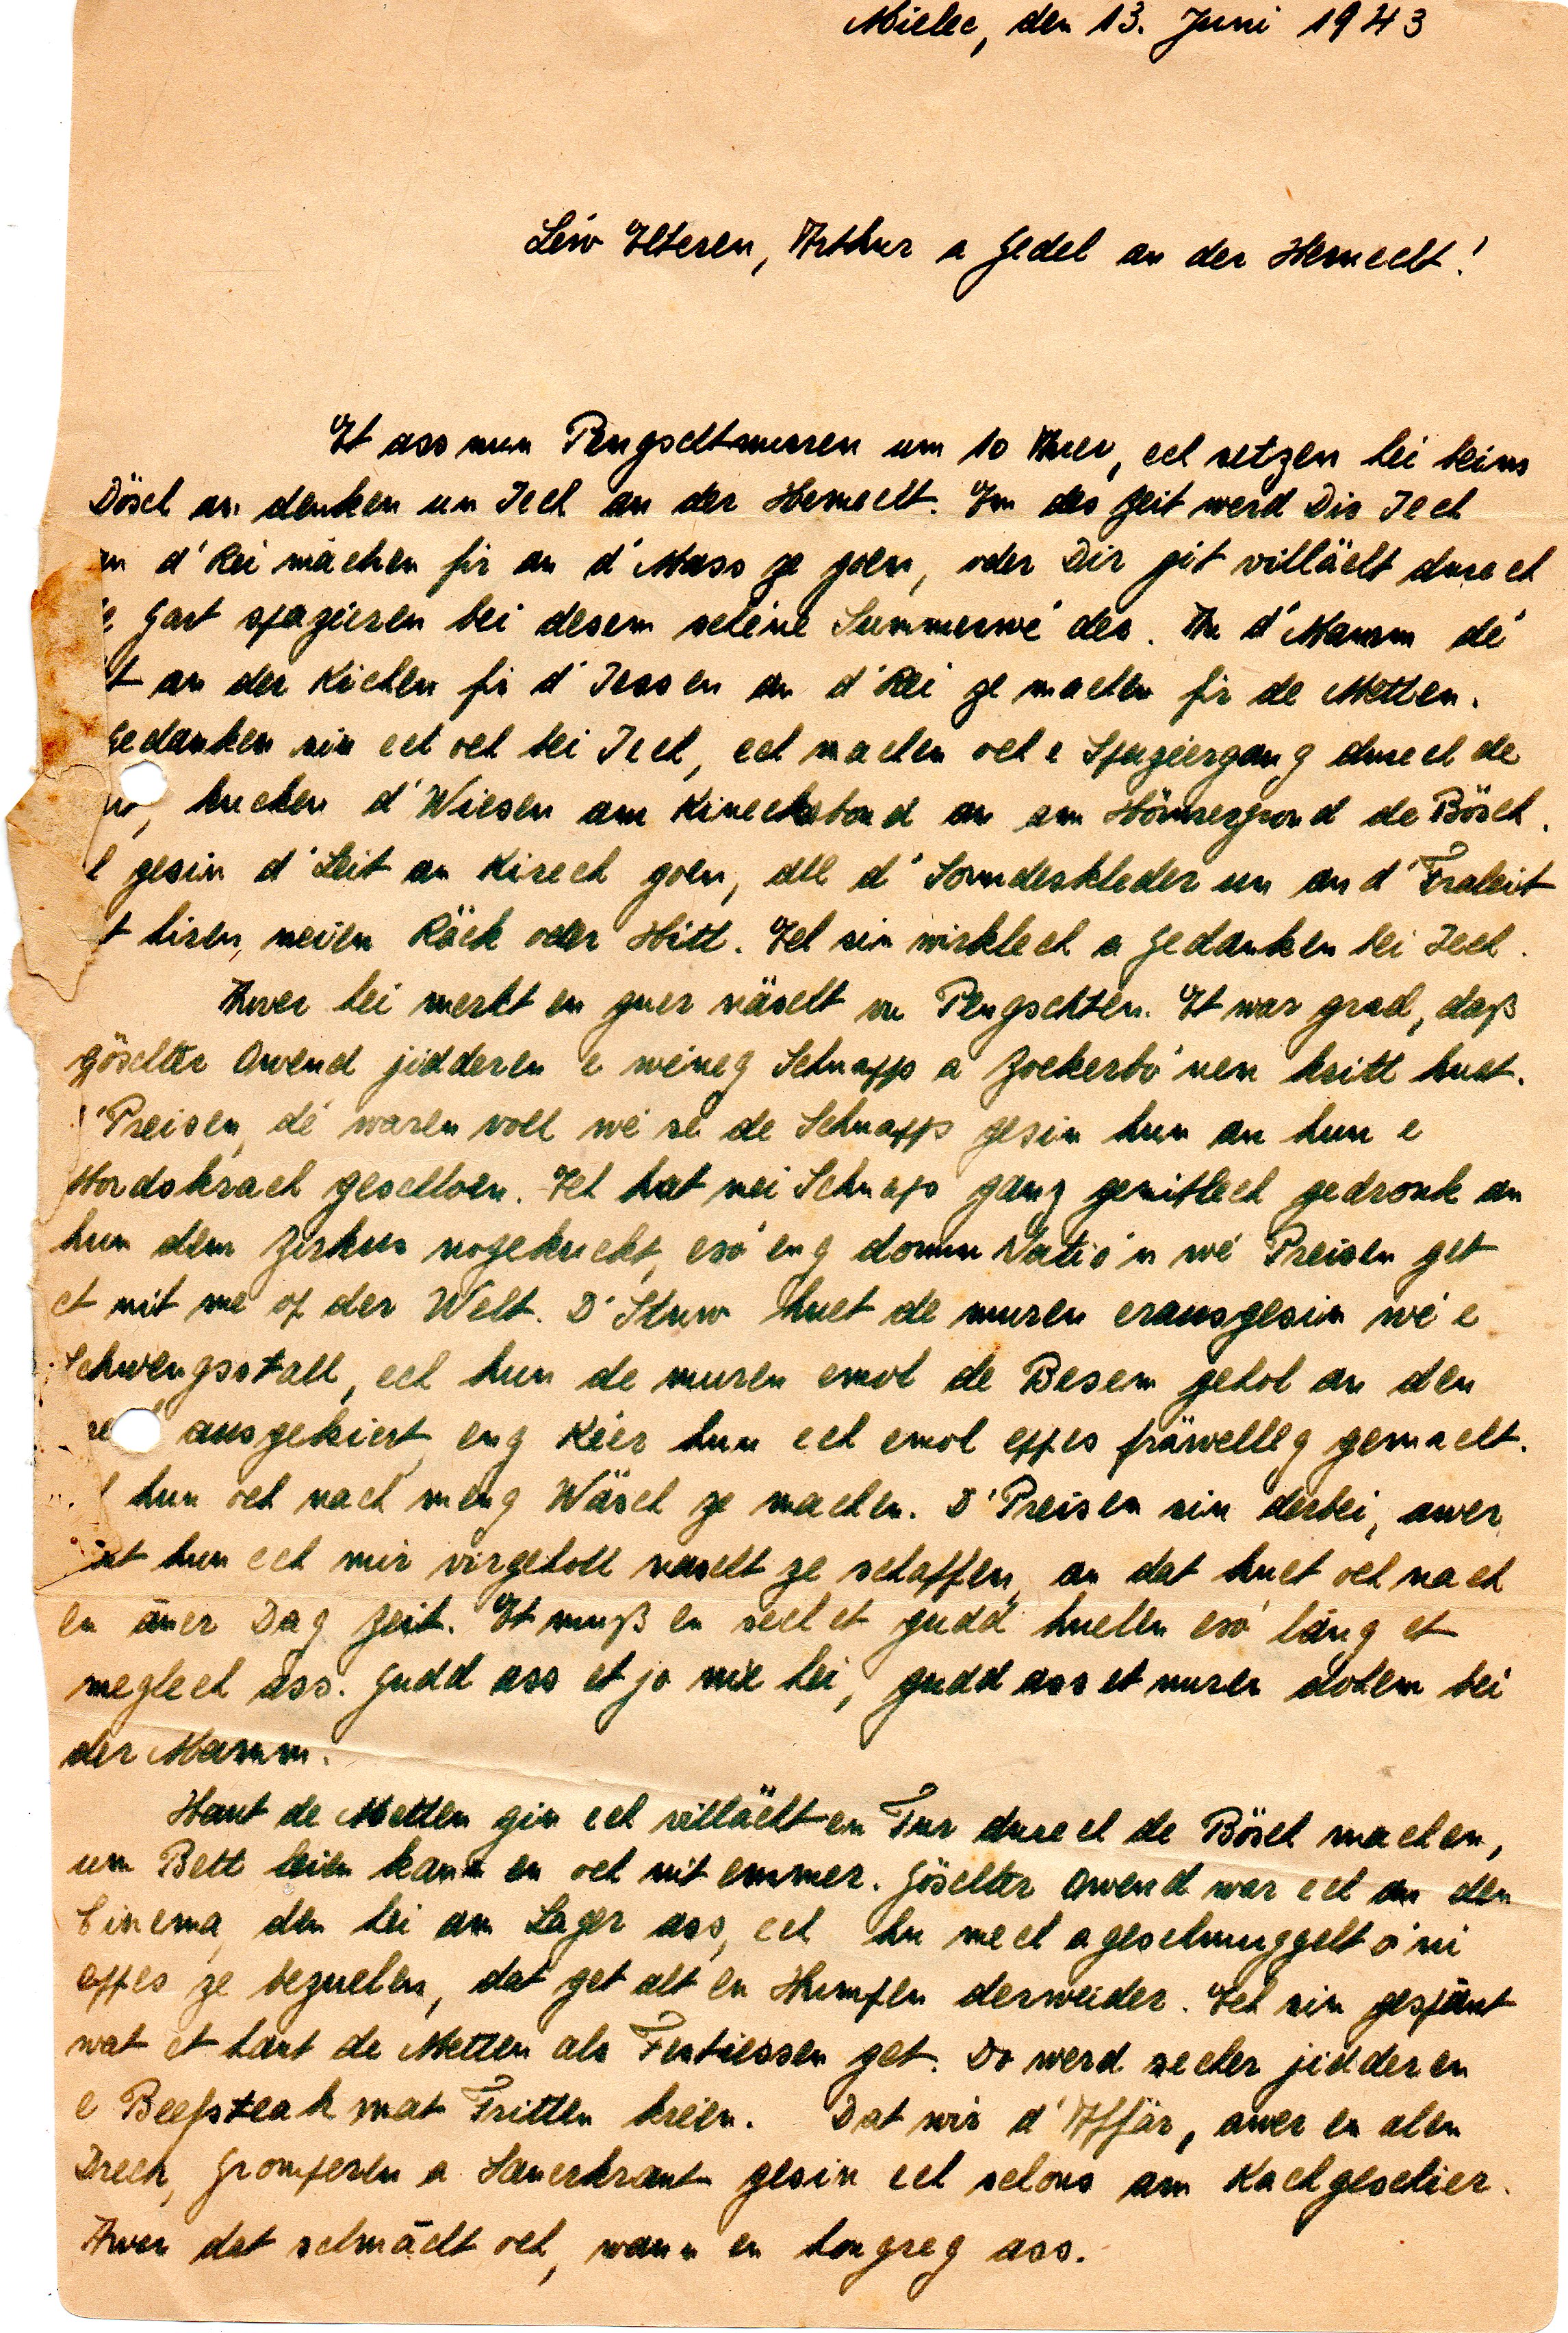 Mielec, den 13. Juni 1943
Léiw Elteren, Arthur a Gedel an der Hemecht!
Et ass nun Pengschtmuren um 10 Auer, ech setzen hei beim
Dösch an denken un Iech an der Hemecht. Em des Zeit werd Dir Iech
an d'Rei maachen fir an d'Mass ze goen, oder Dir git villäicht durech
Gart spazieren bei desem schéine Summerwé der. An d'Mamm dé
t an der Kichen fir d'Iessen an d'Rei ze machen fir de Metten.
Gedanken sin ech och bei Iech, ech machen och e Spaziergang durech de
kucken d'Wiesen am Kineeksbond an am Hönsergrond de Bösch.
gesin d'Leit an Kirech goen, all d'Sonndeskleder un an d'Fraleit
t hiren neien Räck oder Hitt. Ech sin wirklech a Gedanken bei Iech.
Awer hei merkt en guer näischt vu Pengschten. Et war grad, daß
göschter Owend jidderen e wéineg Schnapp a Zockerbó nen kritt huet.
D'Preisen, dé waren voll wé se de Schnapp gesin hun an hun e
Mordskrach geschloen. Ech hat mei Schnaps ganz gemitlech gedronk an
hun dem Zirkus nogekuckt, esó eng domm Natió n wé Preisen get
et nit me op der Welt. D'Stuw huet de muren erausgesin wé e
Schwengsstall, ech hun de muren emol de Besem geholl an den
ausgekiert, eng Kéier hun ech emol eppes fräiwelleg gemacht.
hun och nach meng Wäsch ze machen. D'Preisen sin derbei, awer
hun ech mir virgeholl näischt ze schaffen, an dat huet och nach
en aner Dag Zeit. Et muß en sech et gudd huelen esó láng et
meglech ass. Gudd ass et jo nie hei, gudd ass et nuren dohem bei
der Mamm.
Haut de Metten gin ech villäicht en Tur durech de Bösch machen,
um Bett leien kann en och nit emmer. Göschter Owend war ech an den
Cinema, den hei am Lager ass, ech hu mech ageschmuggelt ó ni
eppes ze bezuelen, dat get alt en Humpen derweider. Ech sin gespánt
wat et haut de Metten als Festiessen get. Do werd secher jidderen
e Beefsteak mat Fritten kréien. Dat wir d'Affär, awer en alen
Dreck, Gromperen a Sauerkraut gesin ech schons am Kachgeschier.
Awer dat schmácht och, wann en hongreg ass.